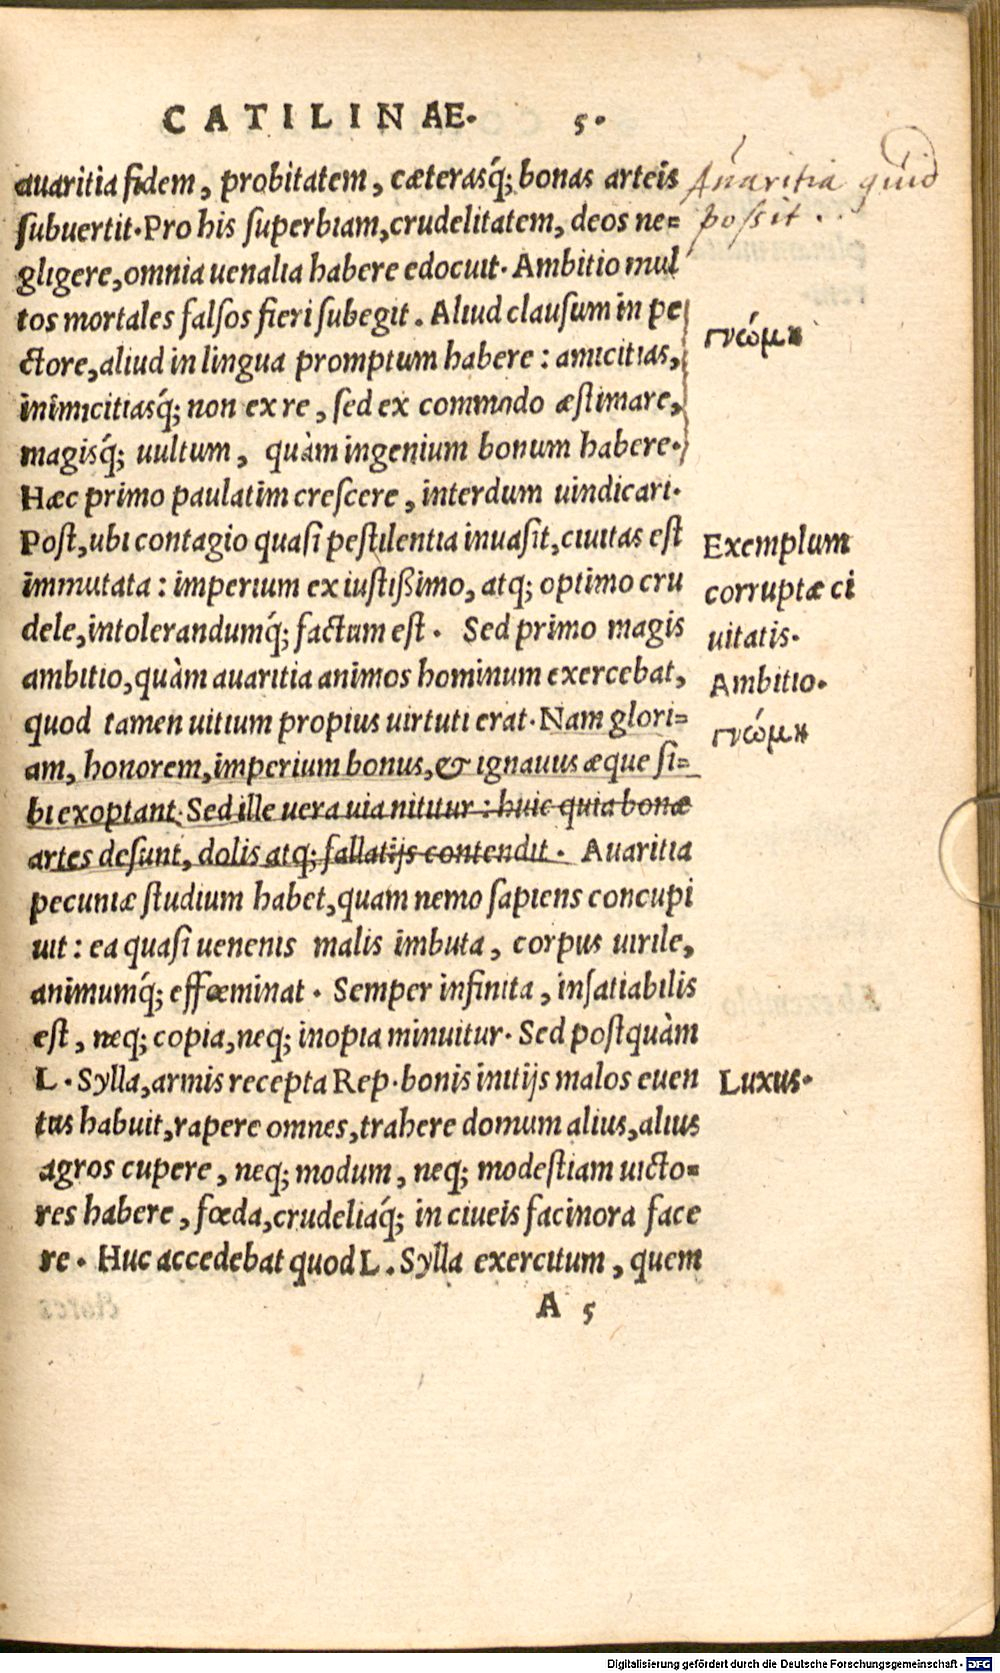 CATILINAE. 5.
auaritia fidem, probitatem, cæterasq́; bonas arteis
subuertit. Pro his superbiam, crudelitatem, deos ne=
gligere, omnia uenalia habere edocuit. Ambitio mul
tos mortales falsos fieri subegit. Aliud clausum in pe
ctore, aliud in lingua promptum habere: amicitias,
inimicitiasq́; non ex re, sed ex commodo æstimare,
magisq́; uultum, quàm ingenium bonum habere.
Hæc primo paulatim crescere, interdum uindicari.
Post, ubi contagio quasi pestilentia inuasit, ciuitas est
immutata: imperium ex iustißimo, atq; optimo cru
dele, intolerandumq́; factum est. Sed primo magis
ambitio, quàm auaritia animos hominum exercebat,
quod tamen uitium propius uirtuti erat. Nam glori=
am, honorem, imperium bonus, & ignauus æque si=
bi exoptant. Sed ille uera uia nititur: huic quia bonæ
artes desunt, dolis atq; fallatijs contendit. Auaritia
pecuniæ studium habet, quam nemo sapiens concupi
uit: ea quasi uenenis malis imbuta, corpus uirile,
animumq́; effœminat. Semper infinita, insatiabilis
est, neq; copia, neq; inopia minuitur. Sed postquàm
L. Sylla, armis recepta Rep. bonis initijs malos euen
tus habuit, rapere omnes, trahere domum alius, alius
agros cupere, neq; modum, neq; modestiam uicto=
res habere, fœda, crudeliaq́; in ciueis facinora face
re. Huc accedebat quod L. Sylla exercitum, quem
A 5
Auaritia quid
possit.
γνώμη
Exemplum
corruptæ ci
uitatis.
Ambitio.
γνώμη
Luxus.
Digitalisierung gefördert durch die Deutsche Forschungsgemeinschaft - DFG